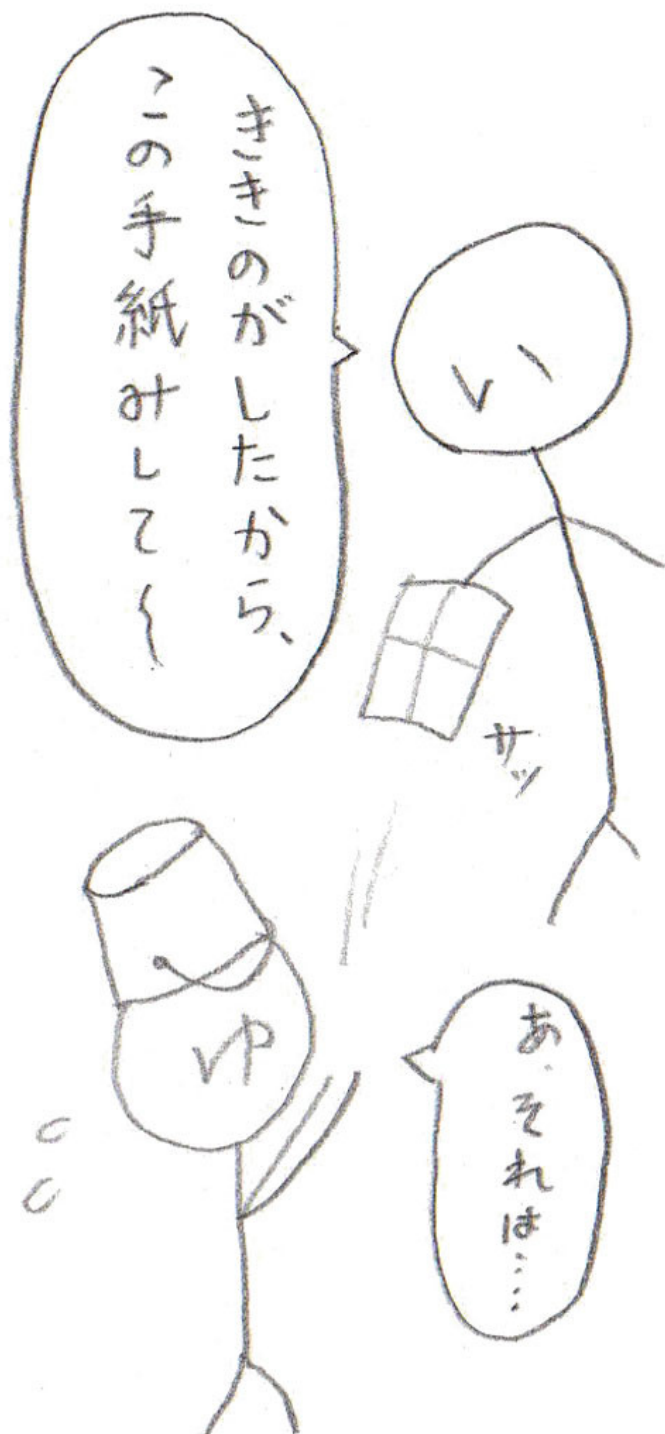 ききのがしたから、
この手紙みして〜
い
サッ
あ、それは…
ゆ